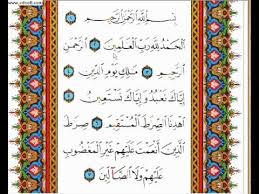 بِسْمِ اللَّهِ الرَّحْمَٰنِ الرَّحِيمِ
الْحَمْدُ لِلَّهِ رَبِّ الْعَالَمِينَ الرَّحْمَٰنِ
الرَّحِيمِ مَلِكِ يَوْمِ الدِّينِ
إِيَّاكَ نَعْبُدُ وَإِيَّاكَ نَسْتَعِينُ
اهْدِنَا الصِّرَاطَ الْمُسْتَقِيمَ صِرَاطَ
الَّذِينَ أَنْعَمْتَ عَلَيْهِمْ غَيْرِ الْمَغْضُوبِ
عَلَيْهِمْ وَلَا الضَّالِّينَ